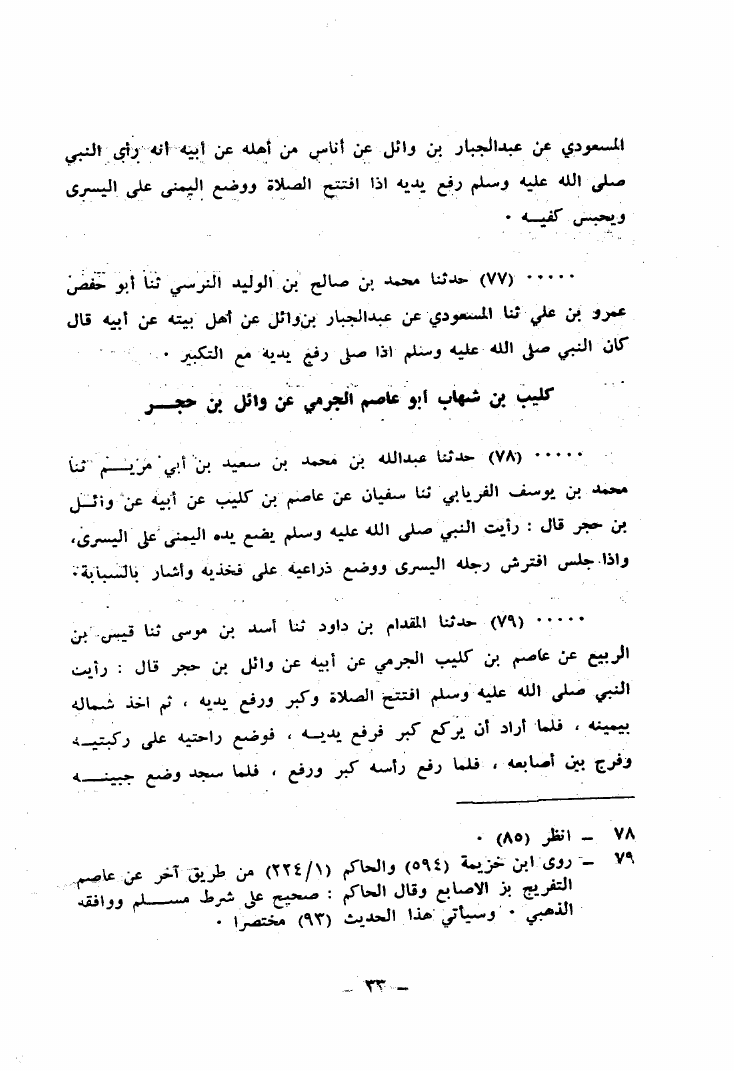 المسعودي عن عبدالجبار بن وائل عن أناس من أهله عن أبيه أنه رأى النبي
صلى الله عليه وسلم رفع يديه اذا افتتح الصلاة ووضع اليمنى على اليسرى
ويحبس كفيـــه ٠
٠٠٠٠٠ (٧٧) حدثنا محمد بن صالح بن الوليد النرسي ثنا أبو حفص
عمرو بن علي ثنا المسعودي عن عبدالجبار بن وائل عن أهل بيته عن أبيه قال
كان النبي صلى الله عليه وسلم اذا صلى رفع يديه مع التكبير ٠
كليب بن شهاب أبو عاصم الجرمي عن وائل بن حجـــر
٠٠٠٠٠ (٧٨) حدثنا عبدالله بن محمد بن سعيد بن أبي مريـــم ثنا
محمد بن يوسف الفريابي ثنا سفيان عن عاصم بن كليب عن أبيه عن وائـــل
بن حجر قال : رأيت النبي صلى الله عليه وسلم يضع يده اليمنى على اليسرى،
واذا جلس افترش رجله اليسرى ووضع ذراعيه على فخذيه وأشار بالسبابة٠
٠٠٠٠٠ (٧٩) حدثنا المقدام بن داود ثنا أسد بن موسى ثنا قيس بن
الربيع عن عاصم بن كليب الجرمي عن أبيه عن وائل بن حجر قال : رأيت
النبي صلى الله عليه وسلم افتتح الصلاة وكبر ورفع يديه ، ثم اخذ شماله
بيمينه ، فلما أراد أن يركع كبر فرفع يديـــه ، فوضع راحتيه على ركبتيـــه
وفرج بين أصابعه ، فلما رفع رأسه كبر ورفع ، فلما سجد وضع جبينـــه
٧٨ – انظر (٨٥) ٠
٧٩ – روى ابن خزيمة (٥٩٤) والحاكم (٢٢٤/١) من طريق آخر عن عاصم
التفريج بز الاصابع وقال الحاكم : صحيح على شرط مســـلم ووافقه
الذهبي ٠ وسيأتي هذا الحديث (٩٣) مختصرا ٠
– ٣٣ –